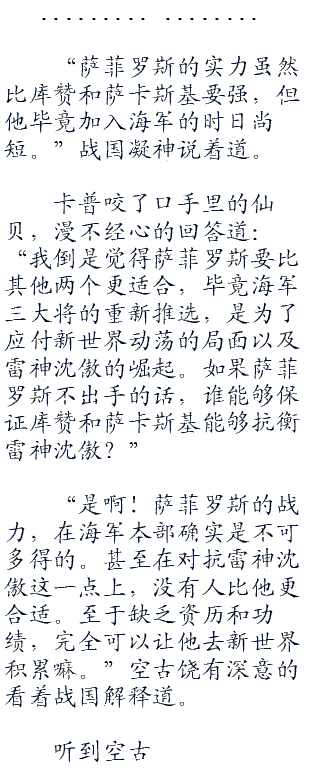 ·········  ········
“萨菲罗斯的实力虽然
比库赞和萨卡斯基要强，但
他毕竟加入海军的时日尚
短。”战国凝神说着道。
卡普咬了口手里的仙
贝，漫不经心的回答道：
“我倒是觉得萨菲罗斯要比
其他两个更适合，毕竟海军
三大将的重新推选，是为了
应付新世界动荡的局面以及
雷神沈傲的崛起。如果萨菲
罗斯不出手的话，谁能够保
证库赞和萨卡斯基能够抗衡
雷神沈傲？”
“是啊！萨菲罗斯的战
力，在海军本部确实是不可
多得的。甚至在对抗雷神沈
傲这一点上，没有人比他更
合适。至于缺乏资历和功
绩，完全可以让他去新世界
积累嘛。”空古饶有深意的
看着战国解释道。
听到空古